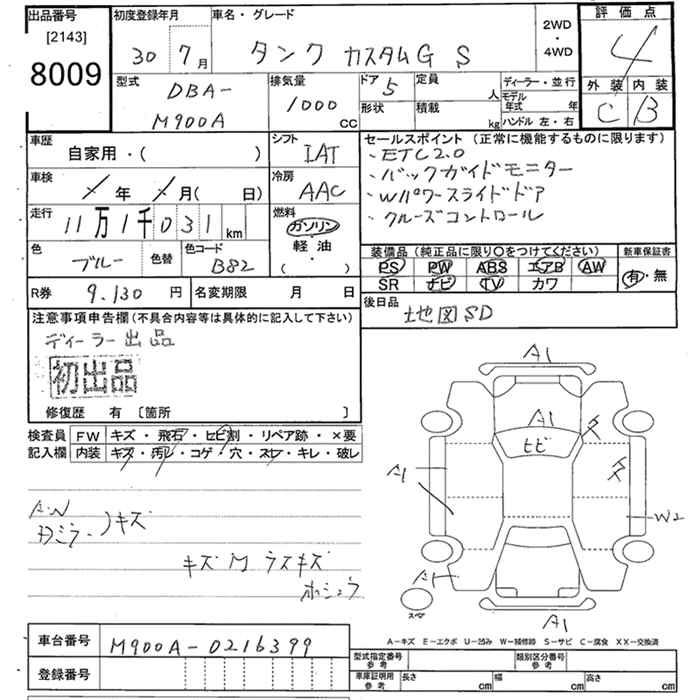 出品番号
[2143]
8009
初度登録年月
30 7 月
車名・グレード
タンク カスタムG S
2WD
・
4WD
評価点
4
外装 内装
C B
型式
DBA-
M900A
排気量
1000
CC
ドア 5
形状
定員
人
積載
kg
ディーラー・並行
モデル
年式 年
ハンドル 左・右
車歴
自家用・( )
車検
年 月( 日)
走行
11万1千031 km
色
ブルー
色替
色コード
B82
シフト
IAT
冷房
AAC
燃料
ガソリン
・
軽油
( ・ )
セールスポイント (正常に機能するものに限ります)
・ETC2.0
・バックガイドモニター
・Wパワースライドドア
・クルーズコントロール
装備品 (純正品に限り〇をつけてください)
PS PW ABS エアB AW
SR ナビ TV カワ
新車保証書
有・無
後日品
地図SD
R券 9,130 円
名変期限 月 日
注意事項申告欄 (不具合内容等は具体的に記入して下さい)
ディーラー出品
初出品
修復歴 有 〔箇所 〕
検査員
記入欄
FW キズ・飛石・ヒビ割・リペア跡・×要
内装 キズ・汚レ・コゲ・穴・スレ・キレ・破レ
AW
キズ
キズ M ラスキズ
A1
A1
ヒビ
A1
W2
A1
A1
スペア
A-キズ E-エクボ U-凹み W-補修跡 S-サビ C-腐食 XX-交換済
車台番号 M900A-0216399
登録番号
型式指定番号
参考
類別区分番号
参考
車庫証明用
参考
長さ cm
幅 cm
高さ cm